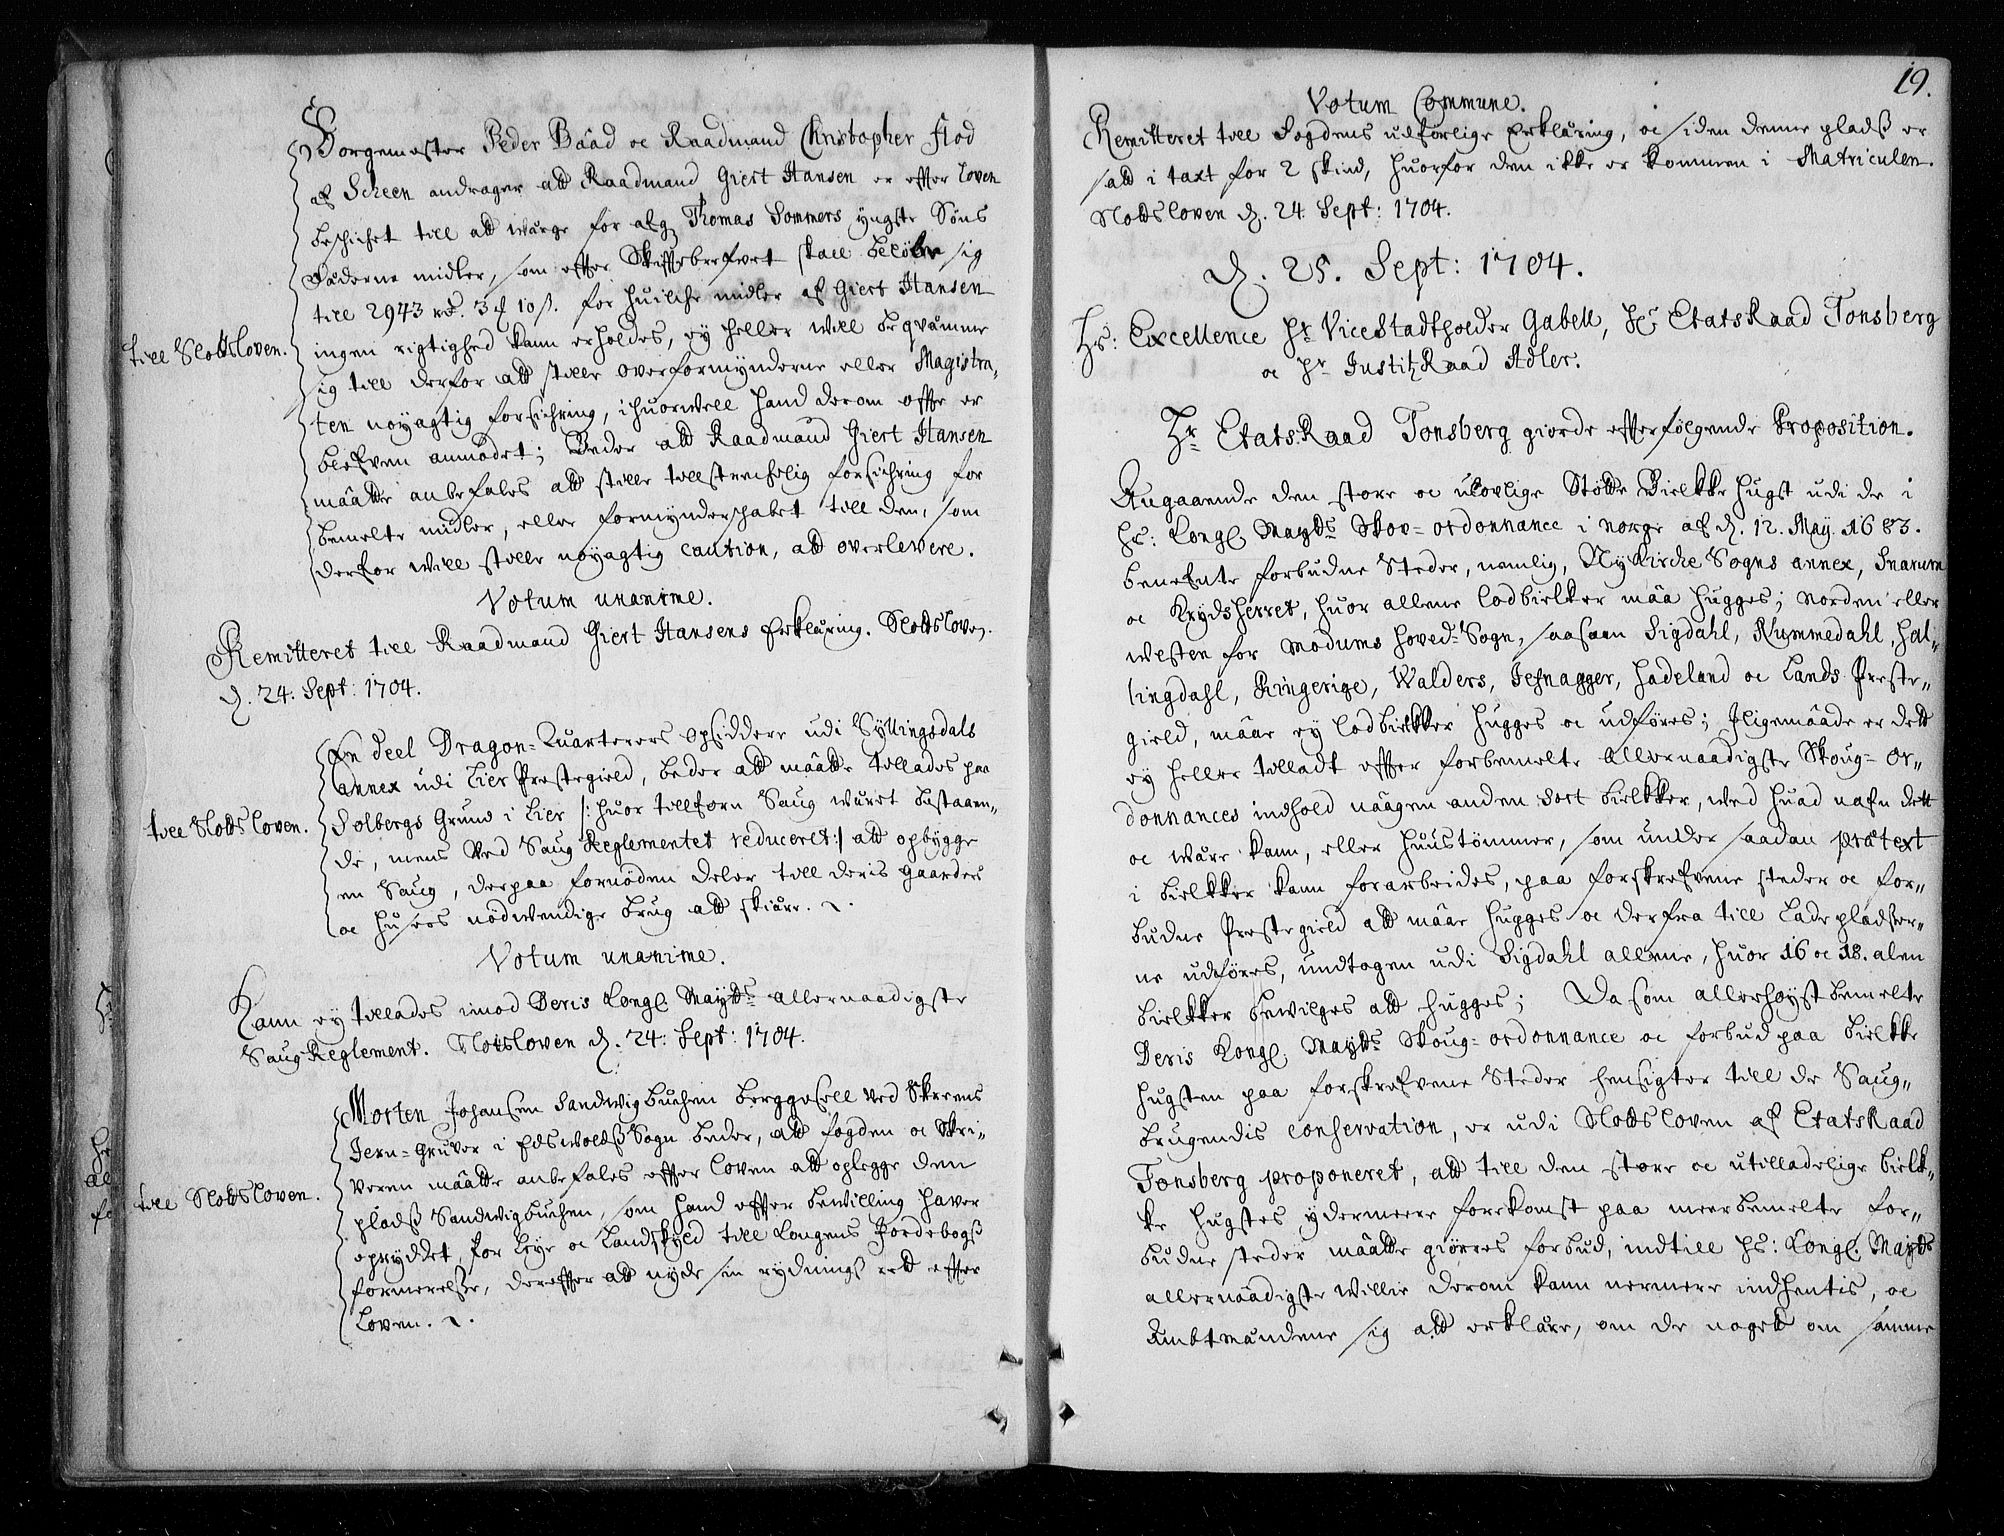 Borgemester Peder Bååd oc Raadmand Christopher Flod
af Scheen andrager att Raadmand Giert Hansen er effter Loven
beschichet till att wærge for afg. Thomas Sommers yngste Søns
Fæderne midler, som effter Skifftebrefvet skall beløbe sig
till 2943 rd. 3 ₰ 10 s. for huilche midler af Giert Hansen
till Slottsloven.
ingen rigtighed kand erholdes, ey heller will beqvämme
sig till derfor att stille overformynderne eller Magistra,,
ten nøyagtig forsichring, ihuorvell hand derom offte er
blefven anmodet; Beder att Raadmand Giert Hansen
måtte anbefales att stille tillstrechelig forsichring for
bemelte midler, eller formynderschabet till den, som
derfor will stille nøyagtig caution, att overlevere.
Votum unanime.
Remitteret till Raadmand Giert Hansens Erklæring. Slottsloven.
d. 24. Sept: 1704.
En deel Dragon=Quarterers opsiddere udi Syllingsdals
annex udi Lier Prestegield, beder att måtte tillades paa
Solbergs Grund i Lier /: huor tillforn Saug wæret bestaaen,,
till Slottsloven.
de, mens Ved Saug Reglementet reduceret :/ att opbygge
en Saug, derpaa fornøden deler till deris gaarders
oc huses nødwendige brug att skiære.
Votum unanime.
Kand ey tillades imod Deris Kongl. Maytts allernaadigste
Saug Reglement. Slotsloven d. 24: Sept: 1704.
Morten Johansen Sandwigbuchen berggesell ved Skerens
Jern=Gruver i Edswolds Sogn beder, att fogden oc Skri,,
veren måtte anbefales effter Loven att oplegge den
till Slottsloven.
plads Sandwigbuchen, som hand effter bewilling haver
opryddet, for leye oc Landskyld till Kongens Jordebogs
formerelse, dereffter att nyde sin rydnings rett effter
Loven.
19.
Votum Commune.
Remitteret till Fogdens udførlige Erklæring, oc siden denne plads er
satt i taxt for 2 skind, huorfor den icke er kommen i Matriculen.
Slottsloven d. 24. Sept: 1704.
d. 25. Sept: 1704.
Hs: Excellence Hr ViceStadtholder Gabell, Hr EtatsRaad Tonsberg
oc Hr JustitzRaad Adler.
Hr EtatsRaad Tonsberg giorde effterfølgende Proposition.
Angaaende den store oc ulovlige Støtte Bielkke hugst udi de i
Hs: Kongl. Maytts Skov=ordonnance i Norge af d. 12. May. 1683.
benefnte forbudne Steder, nemlig, Nykirche Sogns annex, Snarum
oc Krydsherret, huor allene lodbielker mäa hugges; norden eller
westen for Modums hoved=Sogn, saasom Sigdahl, Nummedahl, Hal,,
lingdahl, Ringerige, Walders, Jefnagger, Hadeland oc Lands Preste,,
gield, mäae ey lodbielkker hugges oc udføres; Iligemåade er dett
ey heller tilladt effter forbemelte allernaadigste Skoug=or,,
donnances indhold någen anden sort bielkker, wed huad nafn dett
oc være kand, eller huustømmer, som under saadan prætext
i bielkker kand forarbeides, paa forskrefvene steder oc for,,
budne Prestegield att mäae hugges oc derfra till Ladepladser,,
ne udføres, undtagen udi Sigdahl allene, huor 16 oc 18. alen
bielkker bewilges att hugges; Da som allerhøystbemelte
Deris Kongl. Maytts Skoug=ordonnance oc forbud paa bielkke
hugsten paa forskrefvene Steder hensigter till de Saug,,
brugendis conservation, er udi Slottsloven af EtatsRaad
Tonsberg proponeret, att till den store oc utilladelige bielk,,
ke hugstes ydermeere forekomst paa meerbemelte for,,
budne steder måatte giøres forbud, indtill Hs: Kongl. Maytts
allernåadigste willie derom kand nermere indhentis, oc
Ambtmændene sig att erklære, om de noget om samme